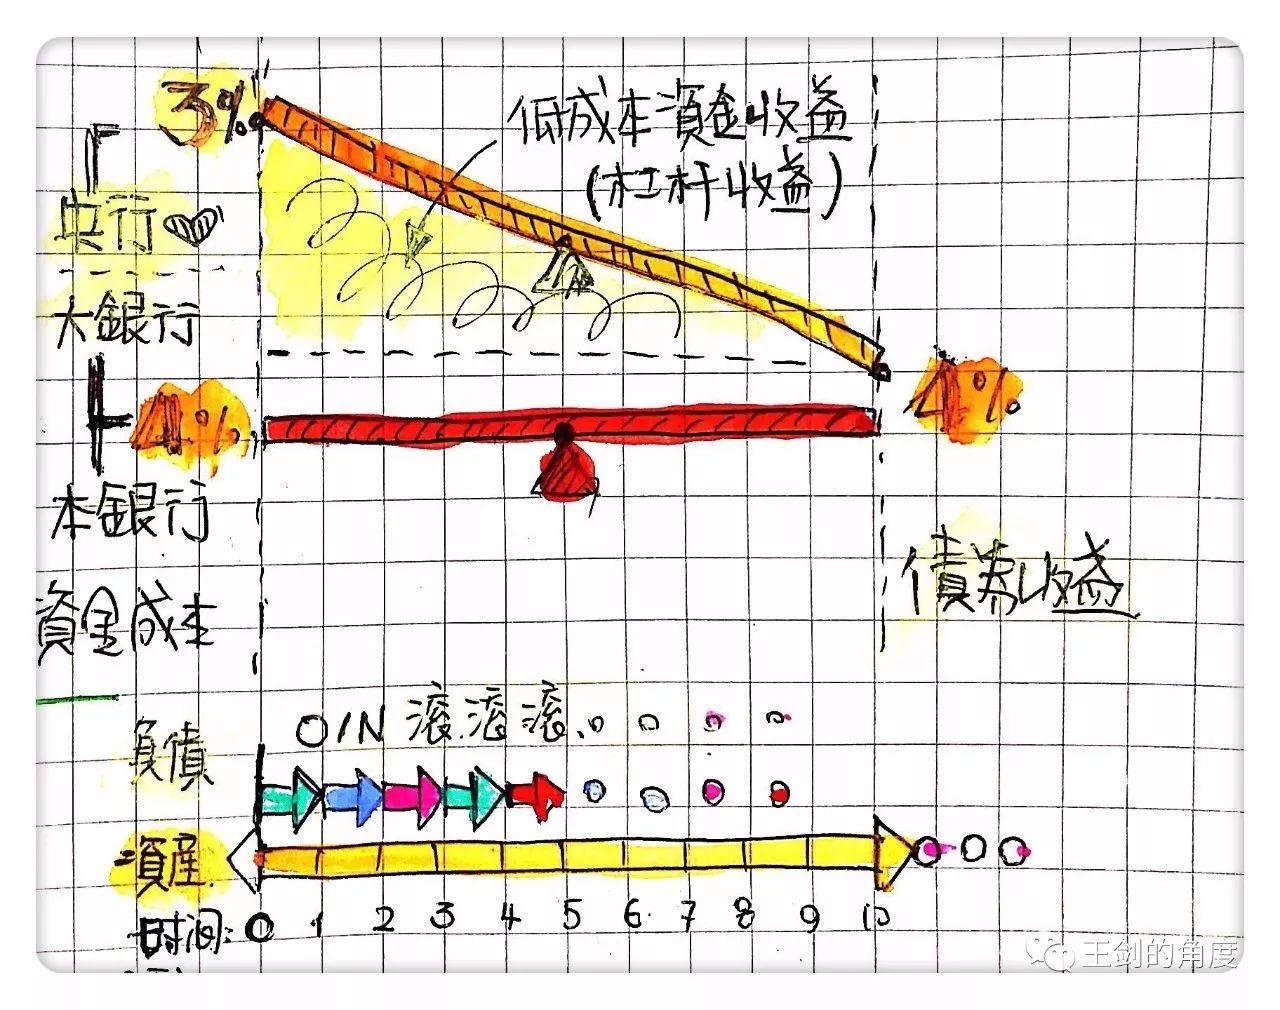 3%
低成本資金收益
(杠杆收益)
央行
大銀行
4%
4%
本銀行
資金成本
債券收益
O/N 滚.滚.滚.
負債
資産
时间: 0 1 2 3 4 5 6 7 8 9 10
王剑的角度